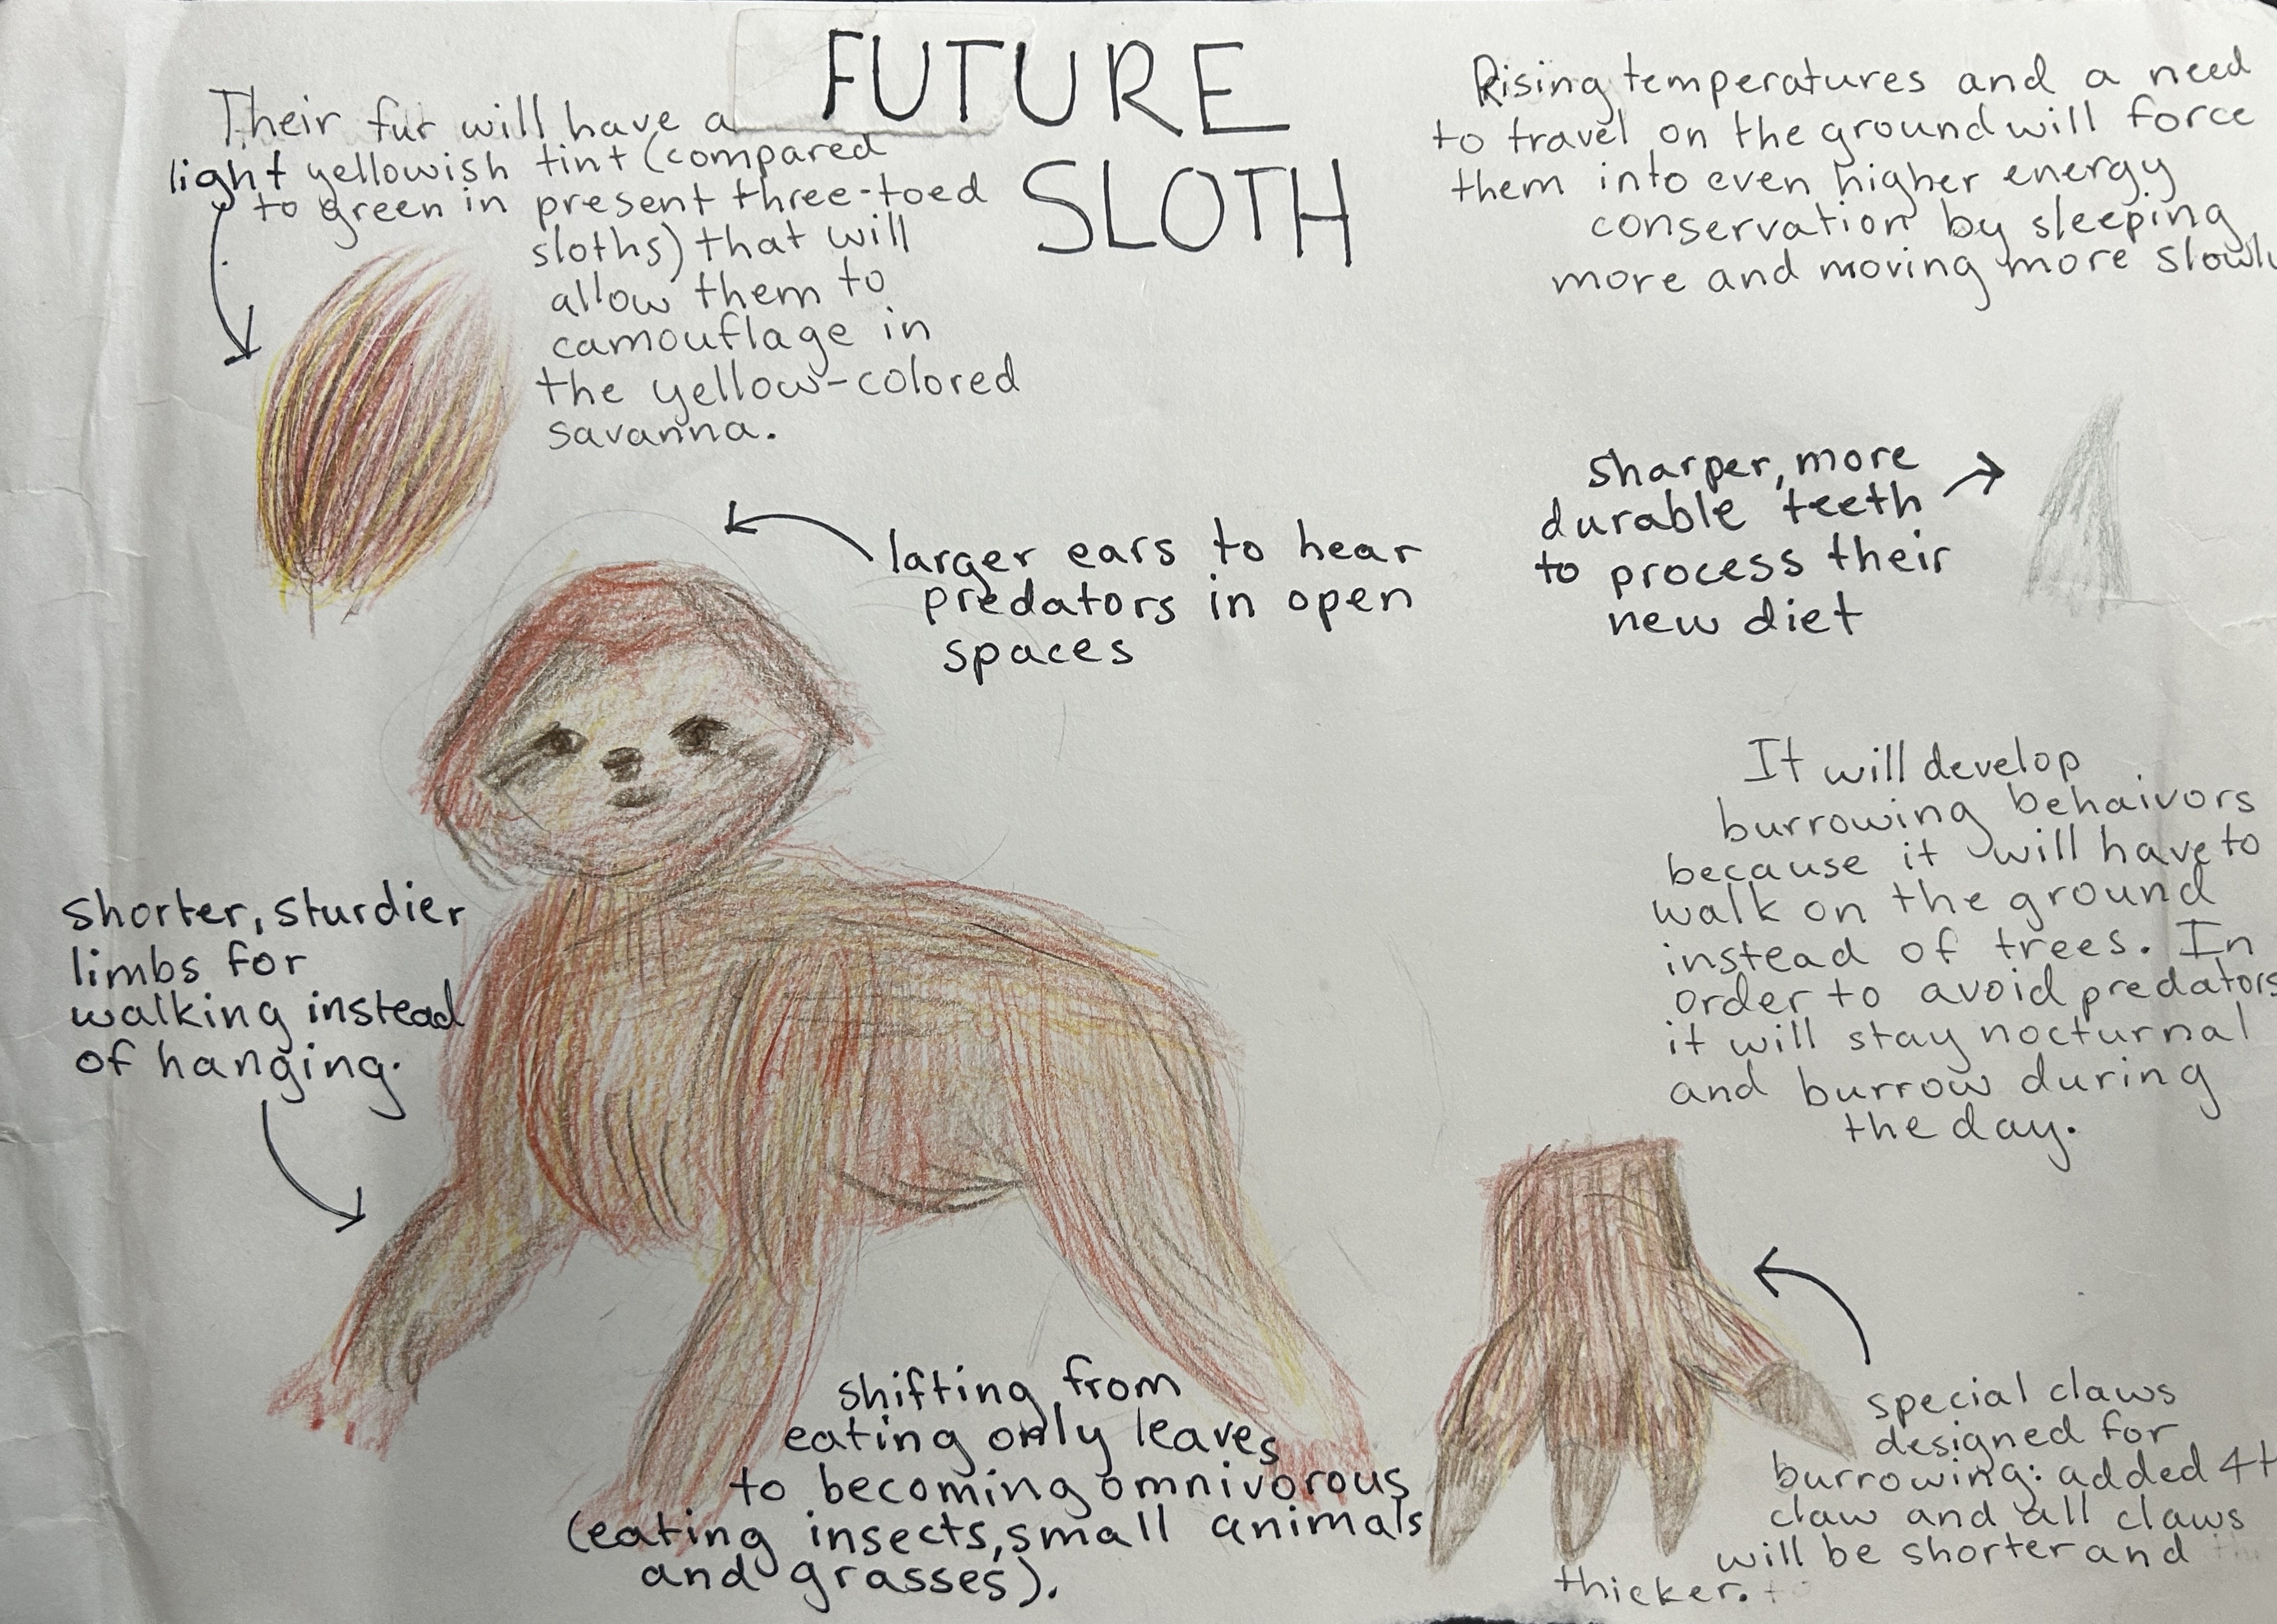 FUTURE
SLOTH
Their fur will have a
light yellowish tint (compared
to green in present three-toed
sloths) that will
allow them to
camouflage in
the yellow-colored
savanna.
Rising temperatures and a need
to travel on the ground will force
them into even higher energy
conservation by sleeping
more and moving more slowly
larger ears to hear
predators in open
spaces
sharper, more
durable teeth
to process their
new diet
It will develop
burrowing behaivors
because it will have to
walk on the ground
instead of trees. In
order to avoid predators
it will stay nocturnal
and burrow during
the day.
shorter, sturdier
limbs for
walking instead
of hanging.
shifting from
eating only leaves
to becoming omnivorous
(eating insects, small animals
and grasses).
special claws
designed for
burrowing: added 4th
claw and all claws
will be shorter and
thicker.